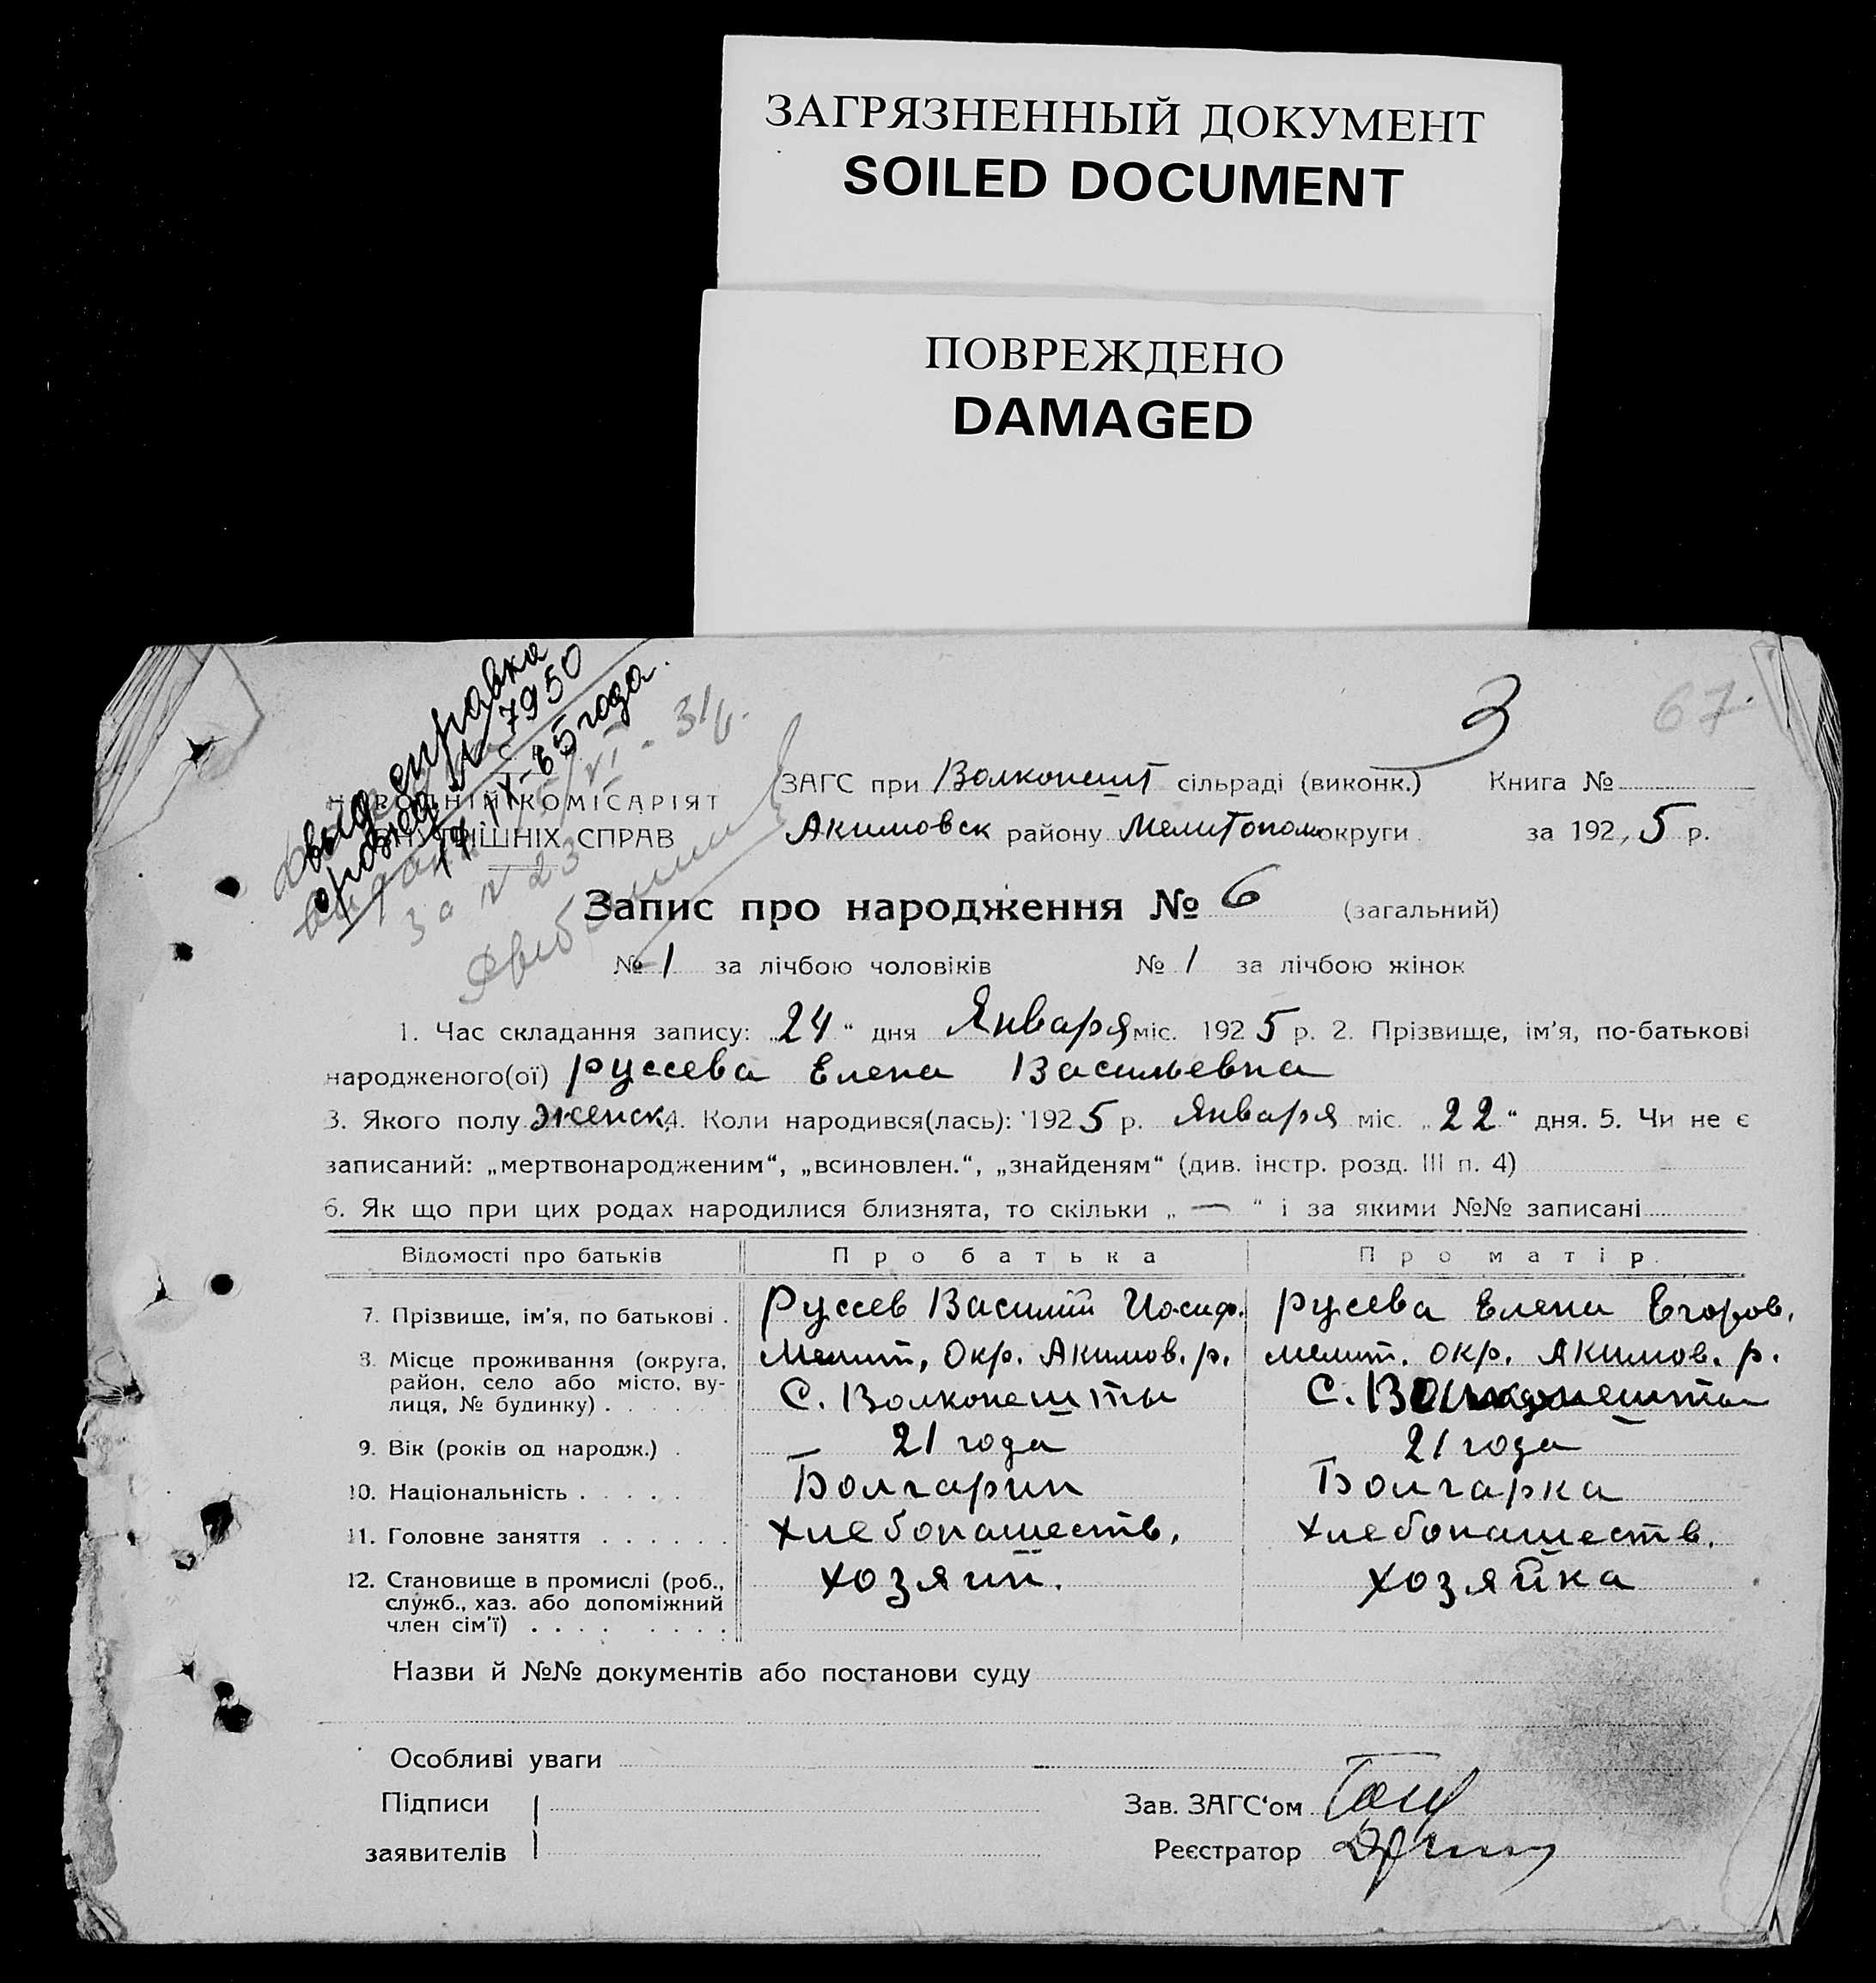 ЗАГРЯЗНЕННЫЙ ДОКУМЕНТ
SOILED DOCUMENT
ПОВРЕЖДЕНО
DAMAGED
3
67.
справка
№ 7950
IX-65 года.
за № 23
ЗАГС при Волконешт сільраді (виконк.) Книга №
НАРОДНІЙ КОМІСАРІЯТ
ВНУТРІШНІХ СПРАВ
Акимовск району Мелитопол округи за 192,5 р.
Запис про народження № 6 (загальний)
№ 1 за лічбою чоловіків № 1 за лічбою жінок
1. Час складання запису: „24“ дня Января міс. 1925 р. 2. Прізвище, ім’я, по-батькові
народженого(ої) Руссева Елена Васильевна
3. Якого полу женск. 4. Коли народився(лась): 1925 р. Января міс. „22“ дня. 5. Чи не є
записаний: „мертвонародженим“, „всиновлен.“, „знайденям“ (див. інстр. розд. III п. 4)
6. Як що при цих родах народилися близнята, то скільки „—“ і за якими №№ записані
Відомості про батьків Про батька Про матір.
7. Прізвище, ім’я, по батькові . Руссев Василий Иосиф. Русева Елена Егоров.
8. Місце проживання (округа, Мелит. Окр. Акимов. р. Мелит. окр. Акимов. р.
район, село або місто, ву-
лиця, № будинку) . . . . . С. Волконешты С. Волконешты
9. Вік (років од народж.) . 21 года 21 года
10. Національність . . . . . Болгарин Болгарка
11. Головне заняття . . . . . . Хлебопашеств. Хлебопашеств.
12. Становище в промислі (роб., Хозяин. Хозяйка
служб., хаз. або допоміжний
член сім’ї) . . . . . . . .
Назви й №№ документів або постанови суду
Особливі уваги
Підписи
заявителів
Зав. ЗАГС‘ом
Реєстратор